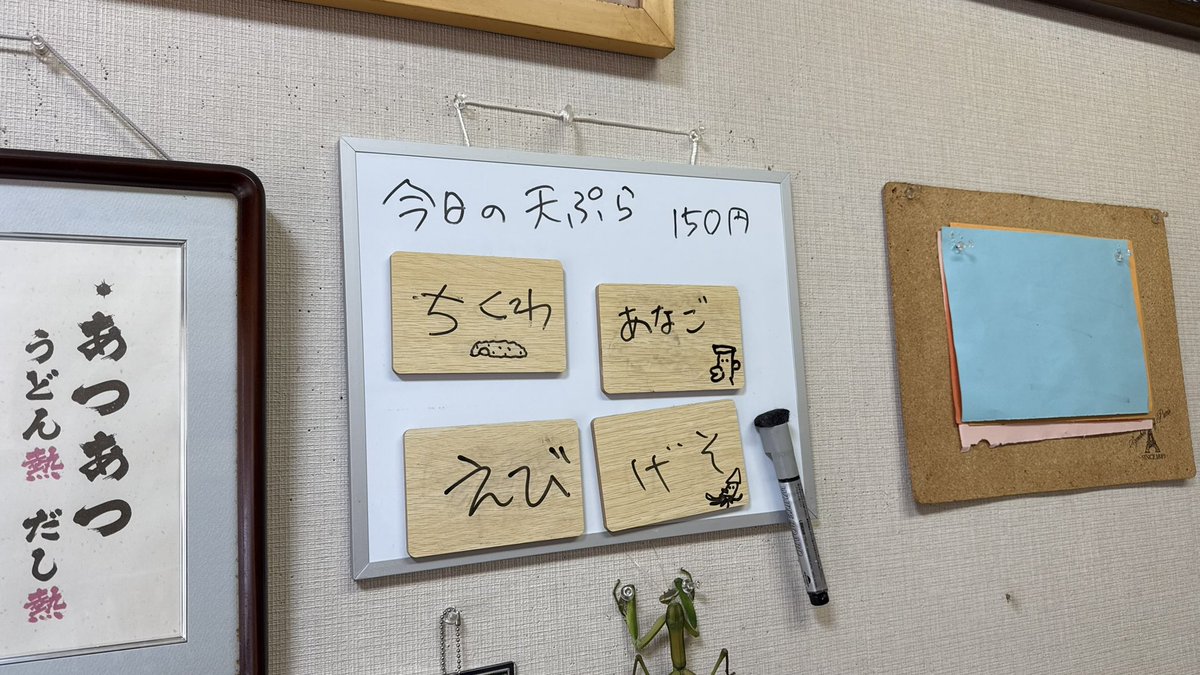 あつあつ
うどん熱 だし熱
今日の天ぷら 150円
ちくわ
あなご
えび
げそ
SINCE 1895